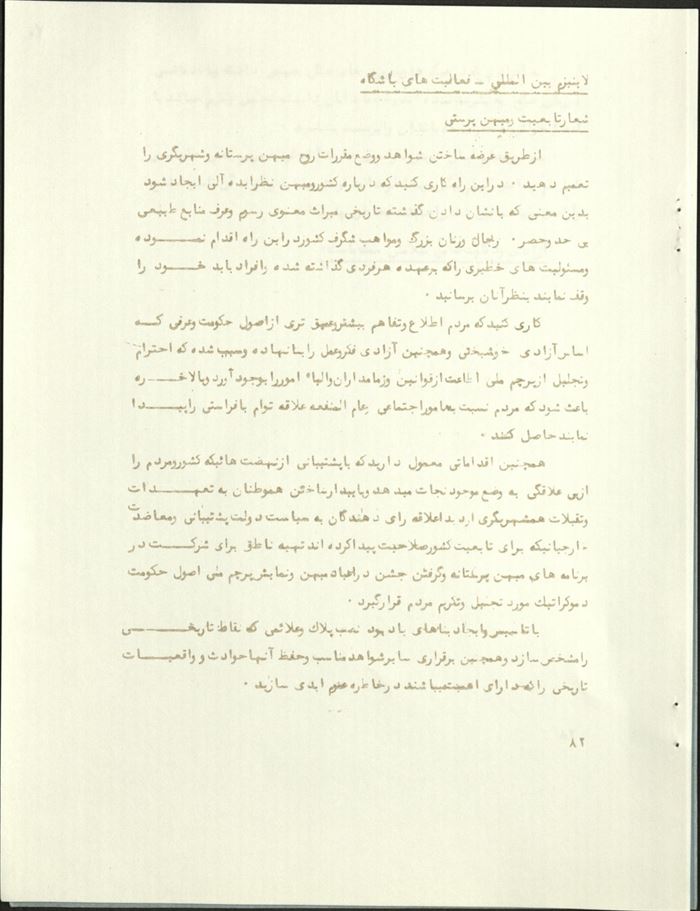 لاینیزم بین المللی - فعالیت های باشگاه
شعار تابعیت ومیهن پرستی
از طریق عرضه ساختن شواهد ووضع مقررات روح میهن پرستانه وشهریگری را
تعمیم دهید ۰ در این راه کاری کنید که درباره کشورومیهن نظر ایده آلی ایجاد شود
بدین معنی که بانشان دادن گذشته تاریخی میراث معنوی رسوم وعرف منابع طبیعی
بی حدوحصر ۰ رجال وزنان بزرگ ومواهب شگرف کشور دراین راه اقدام نمـــوده
ومسئولیت های خطیری راکه برعهده هرفردی گذاشته شده وافراد باید خـــود را
وقف نمایند بنظر آنان برسانید ۰
کاری کنید که مردم اطلاع وتفاهم بیشتروعمیق تری از اصول حکومت وعرفی کـــه
اساس آزادی خوشبختی وهمچنین آزادی فکروعمل رابنانهاده وسبب شده که احترام
وتجلیل ازپرچم ملی اطاعت ازقوانین وزمامداران واولیاء امور را بوجود آورد وبالاخـــره
باعث شود که مردم نسبت بامور اجتماعی عام المنفعه علاقه توام بافراستی راپیـــدا
نمایند حاصل کنند ۰
همچنین اقداماتی معمول دارید که باپشتیبانی ازنهضت هائیکه کشورومردم را
ازبی علاقگی به وضع موجود نجات میدهد وپایدارساختن هموطنان به تعهـــدات
وتقبلات همشهریگری ازدیاد علاقه رای دهندگان به سیاست دولت پشتیبانی ومعاضدت
ازخارجیانیکه برای تابعیت کشور صلاحیت پیدا کرده اند تهیه ناطق برای شرکـــت در
برنامه های میهن پرستانه وگرفتن جشن در اعیاد میهن ونمایش پرچم ملی اصول حکومت
دموکراتیک مورد تجلیل وتکریم مردم قرارگیرد ۰
با تاسیس وایجاد بناهای یادبود نصب پلاک وعلائمی که نقاط تاریخـــی
رامشخص سازد وهمچنین برقراری سایر شواهد مناسب وحفظ آنها حوادث و واقعیـــات
تاریخی را که دارای اهمیت میباشند درخاطره عموم ابدی سازید ۰
۸۲